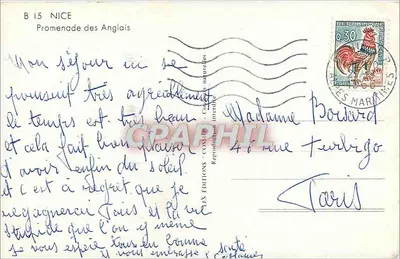 B 15 NICE
Promenade des Anglais
0,30
ALPES MARITIMES
Mon séjour ici se
poursuit très agréablement
le temps est très beau
et cela fait bon
d'avoir enfin du soleil
et c'est à regret que je
regagnerai Paris et la vie
stupide que l'on y mène
je vous espère tous en bonne
santé
et vous embrasse
Madame
48 rue Turbigo
Paris
CPAPHIL
LES ÉDITIONS